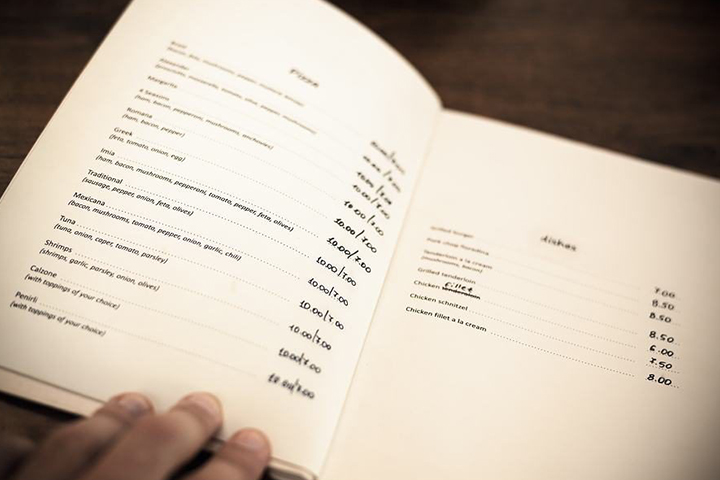 Pizza
Margarita
4 Seasons
(ham, bacon, pepperoni, mushrooms, anchovies)
Romana
(ham, bacon, pepper)
Greek
(feta, tomato, onion, egg)
Imia
(ham, bacon, mushrooms, pepperoni, tomato, pepper, feta, olives)
Traditional
(sausage, pepper, onion, feta, olives)
10.00/7.00
Mexicana
(bacon, mushrooms, tomato, pepper, onion, garlic, chili)
10.00/7.00
Tuna
(tuna, onion, caper, tomato, parsley)
10.00/7.00
Shrimps
(shrimps, garlic, parsley, onion, olives)
10.00/7.00
Calzone
(with toppings of your choice)
10.00/7.00
Penirli
(with toppings of your choice)
10.00/7.00
dishes
Grilled burger 7.00
Pork chop 8.50
tenderloin a la cream
(mushrooms, bacon) 8.50
Grilled tenderloin 8.50
Chicken fillet 6.00
Chicken schnitzel 7.50
Chicken fillet a la cream 8.00